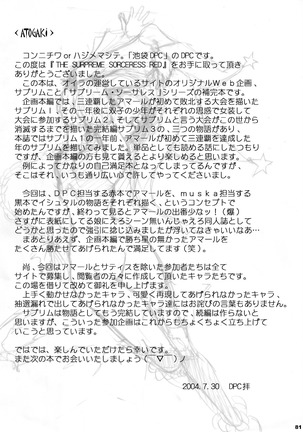 <ATOGAKI>
コンニチワorハジメマシテ。「池袋DPC」のDPCです。
この度は『THE SUPREME SORCERESS RED』をお手に取って頂き
ありがとうございます。
本誌は、オイラの運営しているサイトのオリジナルWeb企画、
サブリムこと「サブリーム・ソーサレス」シリーズの補完本です。
企画本編では、三連覇したアマールが初めて敗北する大会を描いた
サブリム1、その一年後に双子の少年がそれぞれの思惑で女装して
大会に参加するサブリム2、そしてサブリムと言う大会がこの世から
消滅するまでを描いた完結編サブリム3の、三つの物語があり、
本誌ではサブリム1の一年前、アマールが初めて三連覇を達成した
年のサブリムを描いてみました。単品としても読める話にしたつもり
ですが、企画本編の方も見て貰えるとより楽しめると思います。
例によってかなりの自己満足本となってしまってるんですが、
そこはそれ、いつも通り広い心で許してやってくださいまし。
今回は、DPC担当する赤本でアマールを、muska担当する
黒本でイシュタルの物語をそれぞれ描く、というコンセプトで
始めたんですが、終わって見るとアマールの出番少なッ！（爆）
さすがに表紙にしてる娘にろくろシーン無いんじゃえろ同人誌として
どうかと思ったので強引に捻じ込みましたが浮いてなきゃいいなあ…
まあとりあえず、企画本編で勝ち星の無かったアマールを
たくさん勝たせてあげられたんで満足してます（笑）。
尚、今回はアマールとサティス以外の参加者たちは全て
サイトで募集し、閲覧者の方々に作成して頂いたキャラたちです。
この場を借りて改めて御礼を申し上げます。
上手く動かせなかったキャラ、可愛く再現してあげられなかったキャラ、
抽選漏れで出してあげられなかったキャラ達にはお詫びの言葉もありません。
サブリムは物語としてもう完結していますので、続編は作らないと
思いますが、こういった参加企画はこれからもちくちく立ち上げて
いこうと思っています。
ではでは、楽しんでいただけたら幸いです。
また次の本でお会いいたしましょう（￣▽￣）ノ
2004.7.30 DPC拝
81